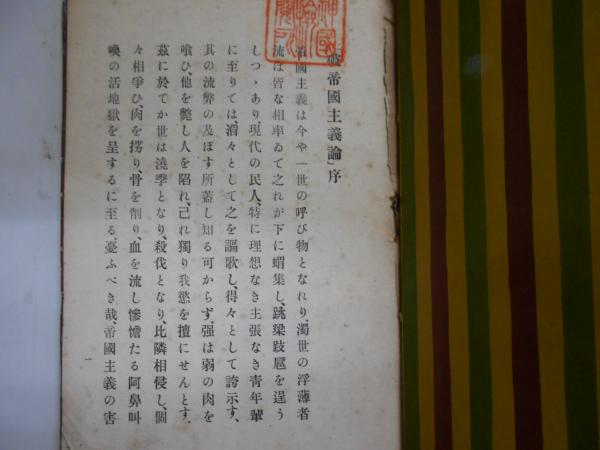 破帝國主義論」序
帝國主義は今や一世の呼び物となれり、濁世の浮薄者
流は皆な相率ゐて之れが下に蝟集し、跳梁跋扈を逞う
しつゝあり現代の民人、特に理想なき主張なき靑年輩
に至りては、滔々として之を謳歌し、得々として誇示す、
其の流弊の及ぼす所蓋し知る可からず、强は弱の肉を
喰ひ、他を斃し人を陷れ、己れ獨り我慾を擅にせんとす、
玆に於てか世は澆季となり、殺伐となり、比隣相侵し、個
々相爭ひ、肉を搒り、骨を削り、血を流し慘憺たる阿鼻叫
喚の活地獄を呈するに至る、憂ふべき哉、帝國主義の害
一